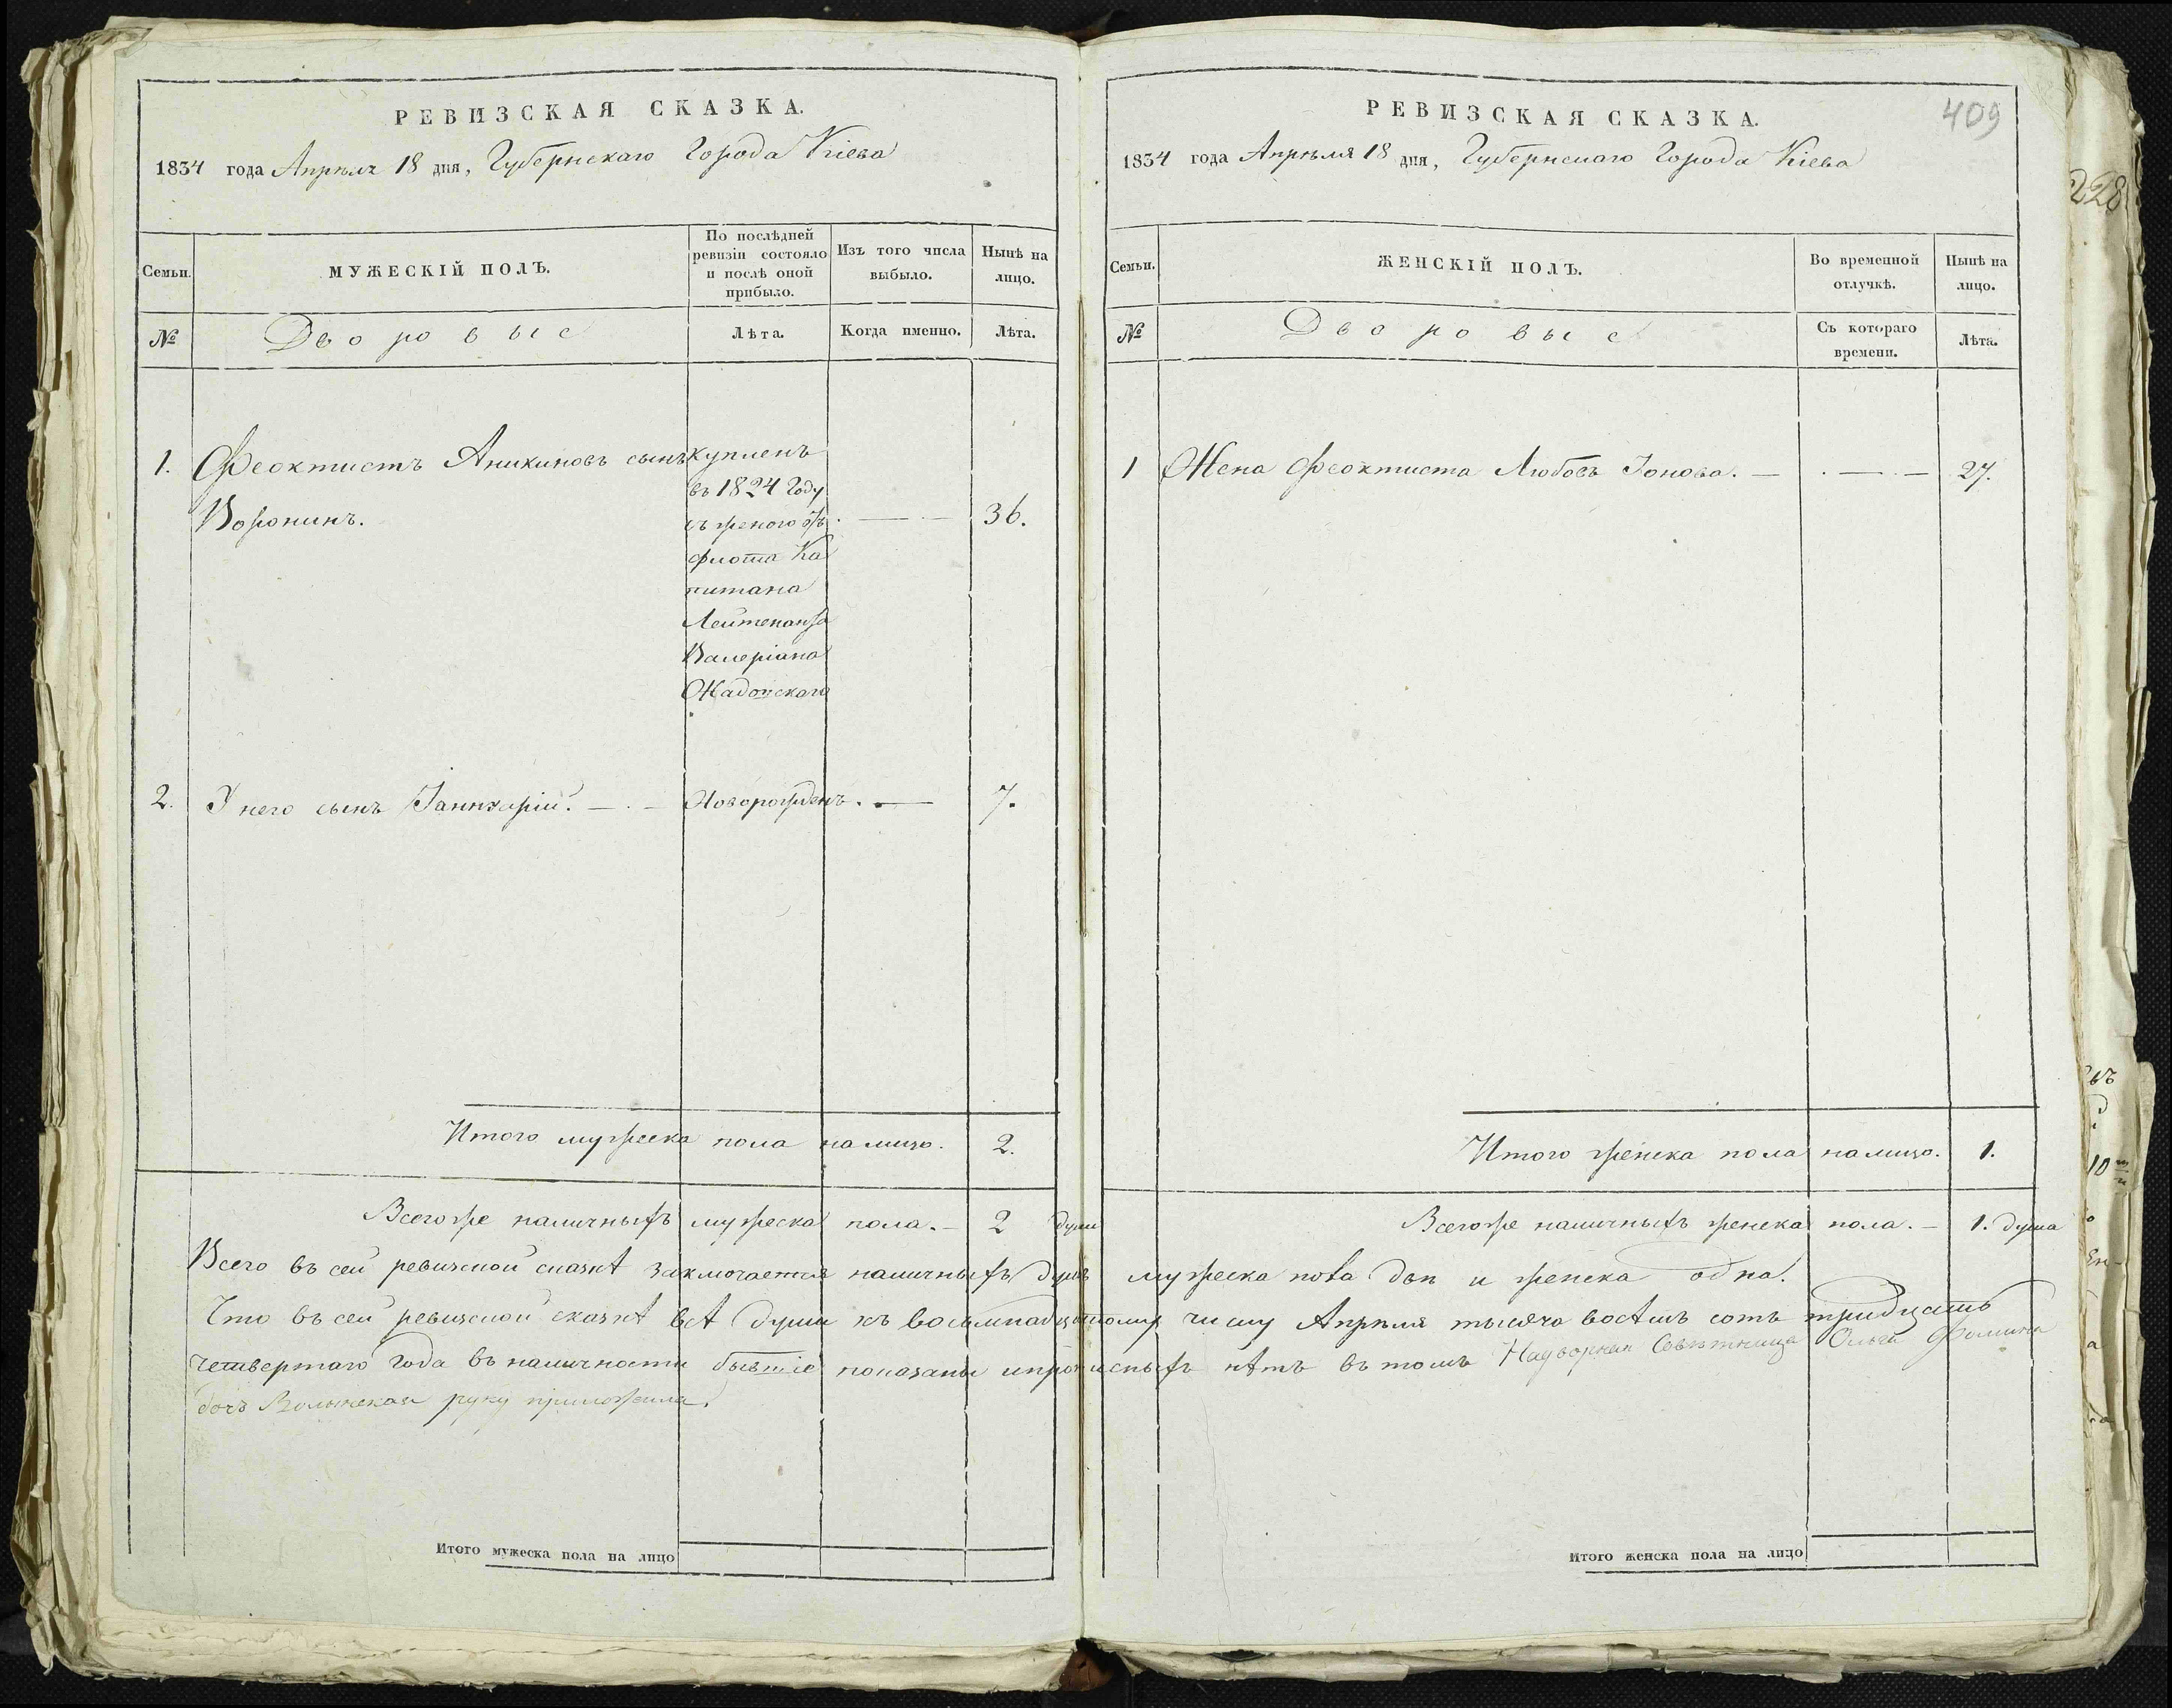 РЕВИЗСКАЯ СКАЗКА.
1834 года Апрѣля 18 дня, Губернскаго Города Кіева
Семьи.
МУЖЕСКІЙ ПОЛЪ.
По послѣдней
ревизіи состояло
и послѣ оной
прибыло.
Изъ того числа
выбыло.
Нынѣ на
лицо.
№
Дворовые
Лѣта.
Когда именно.
Лѣта.
1.
Феоктистъ Аникиновъ сынъ
Воронинъ.
купленъ
въ 1824 году
съ женою отъ
флота Ка
питана
Лейтенанта
Валеріана
Жадовскаго
36.
2. У него сынъ Іаннуарій. — Новорожденъ. — 7.
Итого мужеска пола налицо. 2.
Всегоже наличныхъ мужеска пола. — 2 души
РЕВИЗСКАЯ СКАЗКА.
409
1834 года Апрѣля 18 дня, Губернскаго Города Кіева
228
Семьи.
ЖЕНСКІЙ ПОЛЪ.
Во временной
отлучкѣ.
Нынѣ на
лицо.
№
Дворовые
Съ котораго
времени.
Лѣта.
1 Жена Феоктиста Любовь Іонова. — . — — 27.
Итого женска пола налицо. 1.
Всегоже наличныхъ женска пола. — 1. душа
Всего въ сей ревизской сказкѣ заключается наличныхъ душъ мужеска пола двѣ и женска одна.
Что въ сей ревизской сказкѣ всѣ души къ восьмнадцатому числу Апрѣля тысяча восѣмъ сотъ тридцать
четвертаго года въ наличности бывшіе показаны и прописныхъ нѣтъ въ томъ Надворная Совѣтница Ольга Фомина
дочь Волынская руку приложила.
Итого мужеска пола на лицо
Итого женска пола на лицо